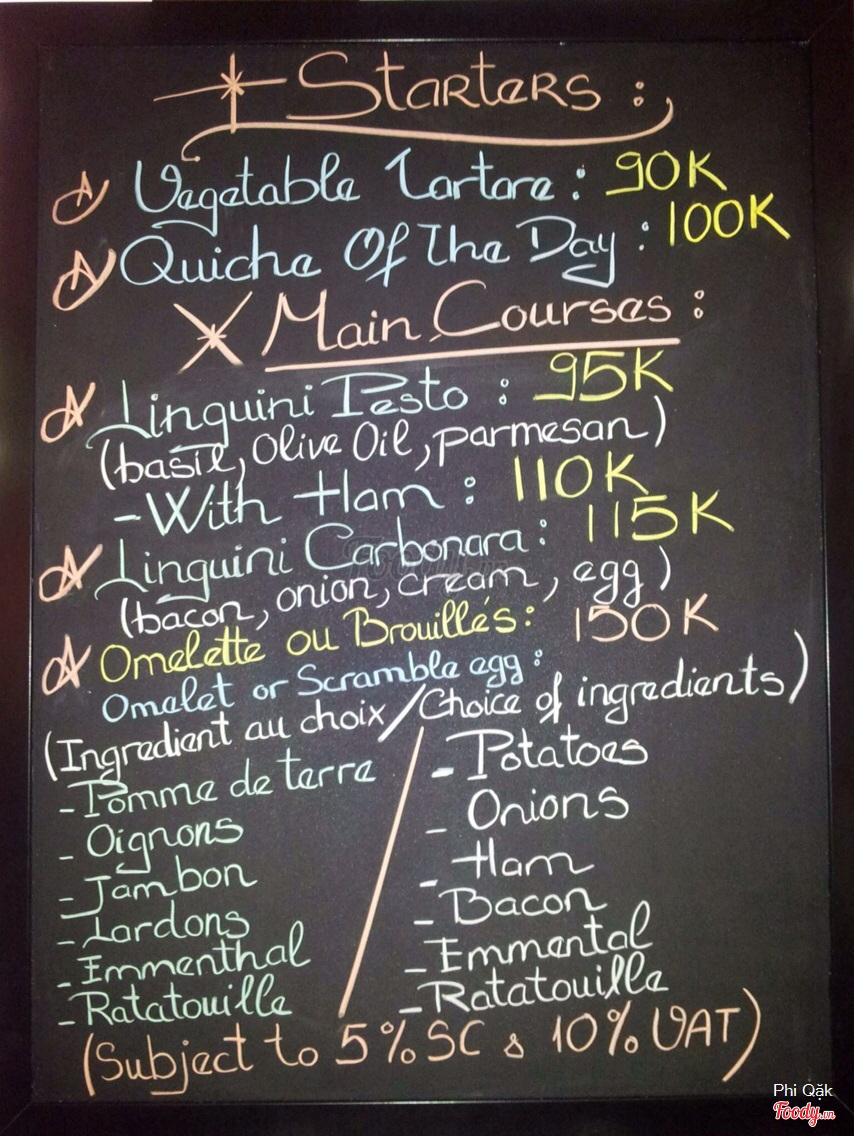 Starters :
Vegetable Tartare : 90K
Quiche Of The Day : 100K
Main Courses :
Linguini Pesto : 95K
(basil, Olive Oil, parmesan)
- With Ham : 110K
Linguini Carbonara : 115K
(bacon, onion, cream, egg)
Omelette ou Brouillés : 150K
Omelet or Scramble egg :
(Ingredient au choix / Choice of ingredients)
- Pomme de terre - Potatoes
- Oignons - Onions
- Jambon - Ham
- Lardons - Bacon
- Emmenthal - Emmental
- Ratatouille - Ratatouille
(Subject to 5% SC & 10% VAT)
Phi Qặk
Foody.vn